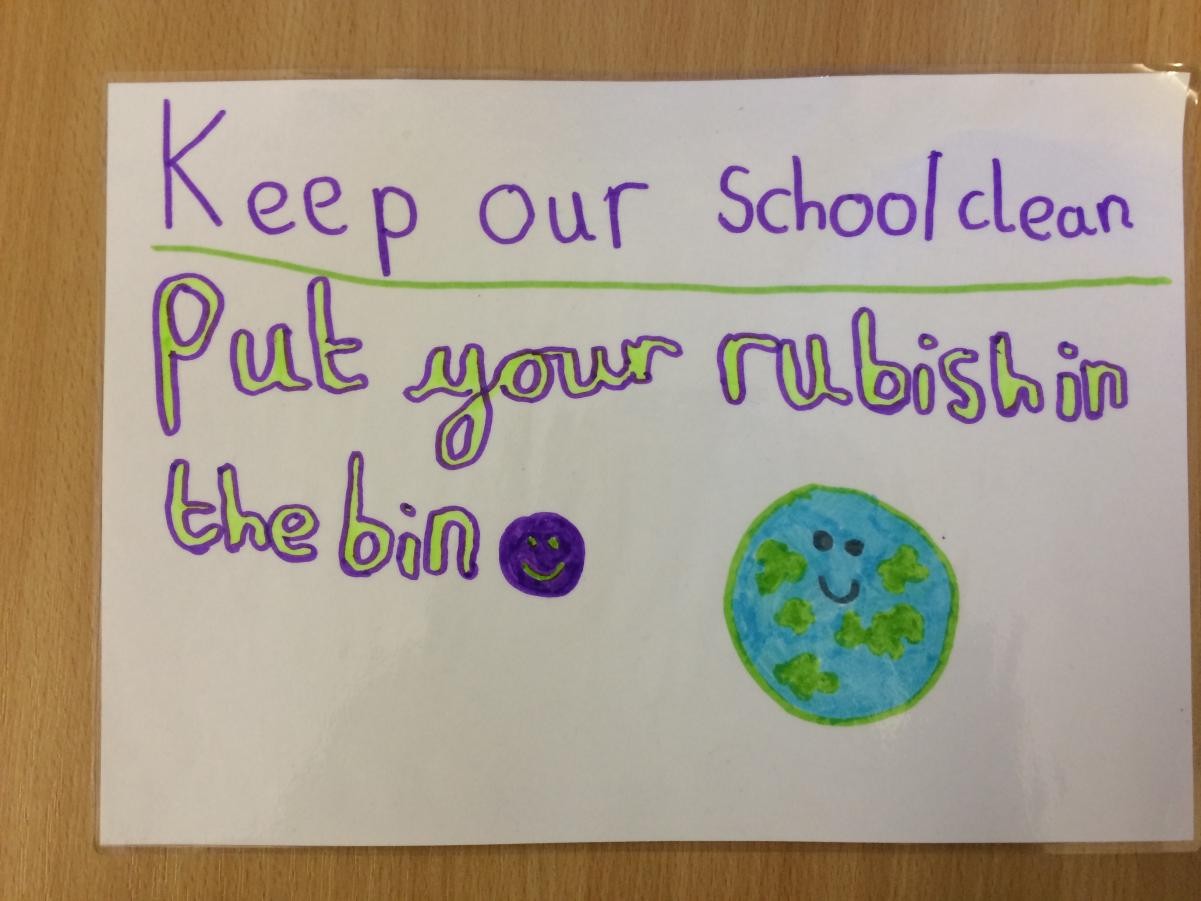 Keep our School clean
Put your rubish in
the bin